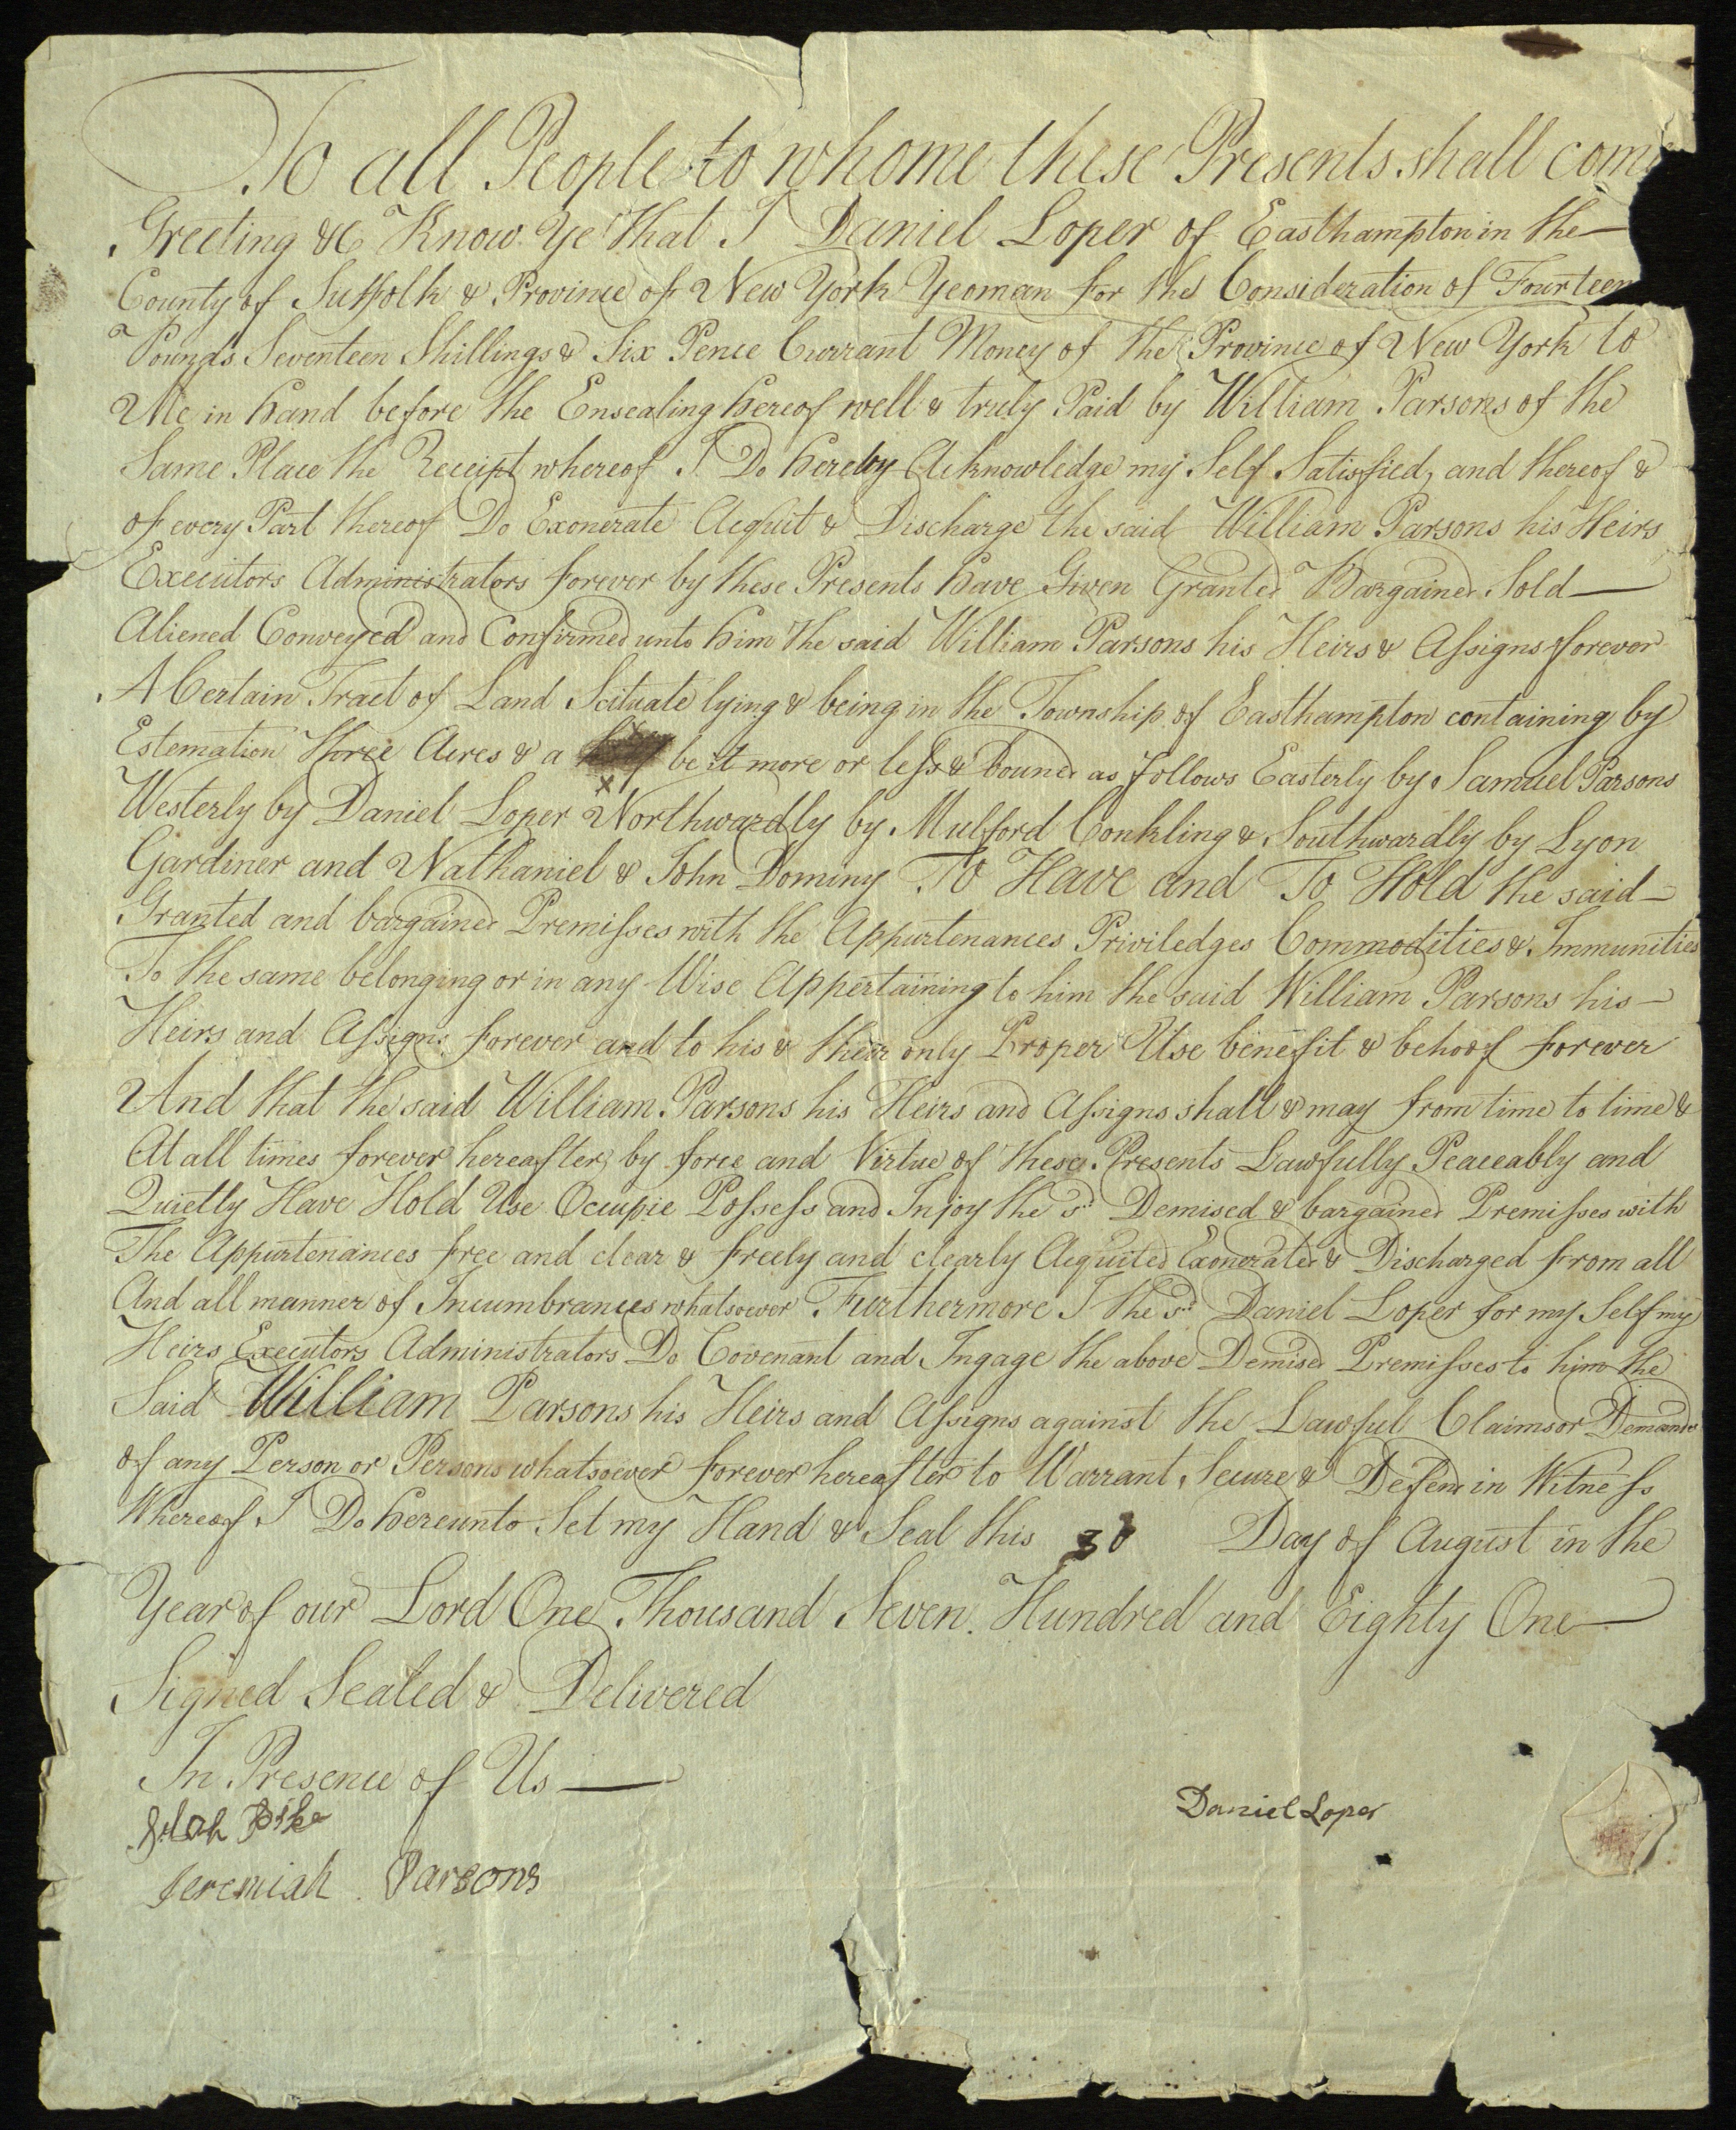 To all People to whome these Presents shall come
Greeting &c Know Ye that I Daniel Loper of Easthampton in the
County of Suffolk & Province of New York Yeoman for the Consideration of Fourteen
Pounds Seventeen Shillings & Six Pence Currant Money of the Province of New York to
Me in hand before the Ensealing hereof well & truly Paid by William Parsons of the
Same Place the Receipt whereof I Do hereby Acknowledge my Self Satisfied, and thereof &
of every Part thereof Do Exonerate Acquit & Discharge the said William Parsons his Heirs
Executors Administrators forever by these Presents have Given Granted Bargained Sold
Aliened Conveyed and Confirmed unto him the said William Parsons his Heirs & Assigns forever
A Certain Tract of Land Scituate lying & being in the Township of Easthampton containing by
Estemation three Acres & a be it more or less & bounded as follows Easterly by Samuel Parsons
Westerly by Daniel Loper Northwardly by Mulford Conkling & Southwardly by Lyon
Gardiner and Nathaniel & John Dominy To Have and To Hold the said
Granted and bargained Premisses with the Appurtenances Priviledges Commodities & Immunities
To the same belonging or in any Wise Appertaining to him the said William Parsons his
Heirs and Assigns forever and to his & their only Proper Use benefit & behoof forever
And that the said William Parsons his Heirs and Assigns shall & may from time to time &
At all times forever hereafter by force and Virtue of these Presents Lawfully Peaceably and
Quietly Have Hold Use Ocupie Possess and Injoy the sd Demised & bargained Premisses with
The Appurtenances free and clear & freely and clearly Acquited Exonerated & Discharged from all
And all manner of Incumbrances whatsoever Furthermore I the sd Daniel Loper for my Self my
Heirs Executors Administrators Do Covenant and Ingage the above Demised Premisses to him the
Said William Parsons his Heirs and Assigns against the Lawful Claims or Demands
of any Person or Persons whatsoever forever hereafter to Warrant, Secure & Defend in Witness
Whereof I Do hereunto Set my Hand & Seal this 30 Day of August in the
Year of our Lord One Thousand Seven Hundred and Eighty One
Signed Sealed & Delivered
In Presence of Us
Daniel Loper
Jeremiah Parsons